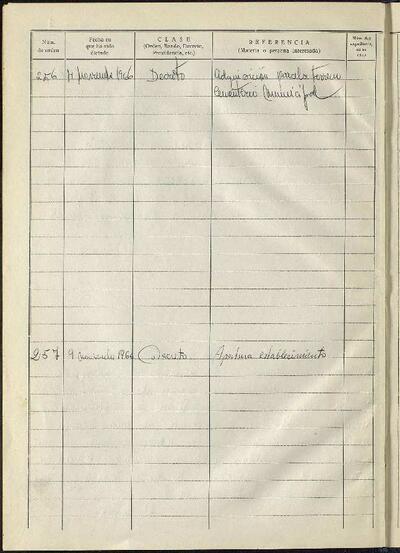 Núm. de orden
Fecha en que ha sido dictado
CLASE
(Orden, Bando, Decreto, Providencia, etc.)
REFERENCIA
(Materia o persona interesada)
Núm. del expediente,
256 7 Noviembre 1966 Decreto Adquisición parcela terreno
Cementerio Municipal
257 9 noviembre 1966 Decreto Apertura establecimiento